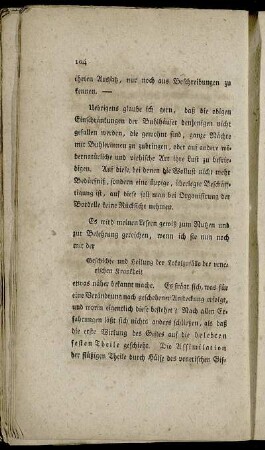 104
ihrem Ausatz, nur noch aus Beschreibungen zu
kennen. —
Uebrigens glaube ich gern, daß die obigen
Einschränkungen der Buhlhäuser denjenigen nicht
gefallen werden, die gewohnt sind, ganze Nächte
mit Buhlerinnen zu zubringen, oder auf andere wi-
dernatürliche und viehische Art ihre Lust zu befrie-
digen. Auf diese, bei denen die Wollust nicht mehr
Bedürfniß, sondern eine üppige, überlegte Beschäff-
tigung ist, auf diese soll man bei Organisirung der
Bordelle keine Rücksicht nehmen.
Es wird meinen Lesern gewiß zum Nutzen und
zur Belehrung gereichen, wenn ich sie nun noch
mit der
Geschichte und Heilung der Lokalzufälle der vene-
rischen Krankheit
etwas näher bekannt mache. Es frägt sich, was für
eine Veränderung nach geschehener Ansteckung erfolgt,
und worin eigentlich diese bestehet? Nach allen Er-
fahrungen läßt sich nicht anders schließen, als daß
die erste Wirkung des Giftes auf die belebten
festen Theile geschieht. Die Assimilation
der flüßigen Theile durch Hülfe des venerischen Gif-